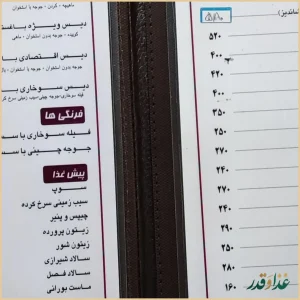 ماهیچه - گردن - جوجه با استخوان
دیس ویژه باغستا
کوبیده - جوجه بدون استخوان - ماهی
دیس اقتصادی با
جوجه بدون استخوان - جوجه با استخوان
دیس سوخاری با
فیله سوخاری-جوجه چینی-سیب زمینی سرخ کر
فرنگی ها
فیله سوخاری با س
جوجه چینی با س
پیش غذا
سوپ
سیب زمینی سرخ کرده
چیپس و پنیر
زیتون پرورده
زیتون شور
سالاد شیرازی
سالاد فصل
ماست بورانی
شاندیز)
۵۲۰
۴۰۰
۴۲۰
۴۰۰
۳۵۰
۲۵۰
۲۴۰
۲۷۰
۲۴۰
۲۷۰
۲۵۰
۲۸۰
۱۶۰
غذا و قدر